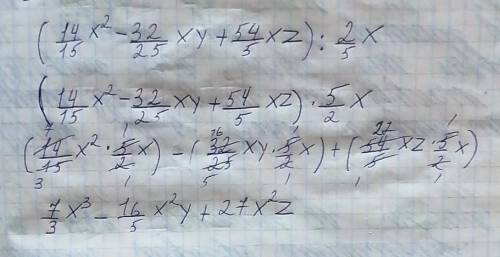 (14/15 x² - 32/25 xy + 54/5 xz) : 2/5 x
(14/15 x² - 32/25 xy + 54/5 xz) · 5/2 x
(14/15 x² · 5/2 x) - (32/25 xy · 5/2 x) + (54/5 xz · 5/2 x)
7/3 x³ - 16/5 x²y + 27x²z